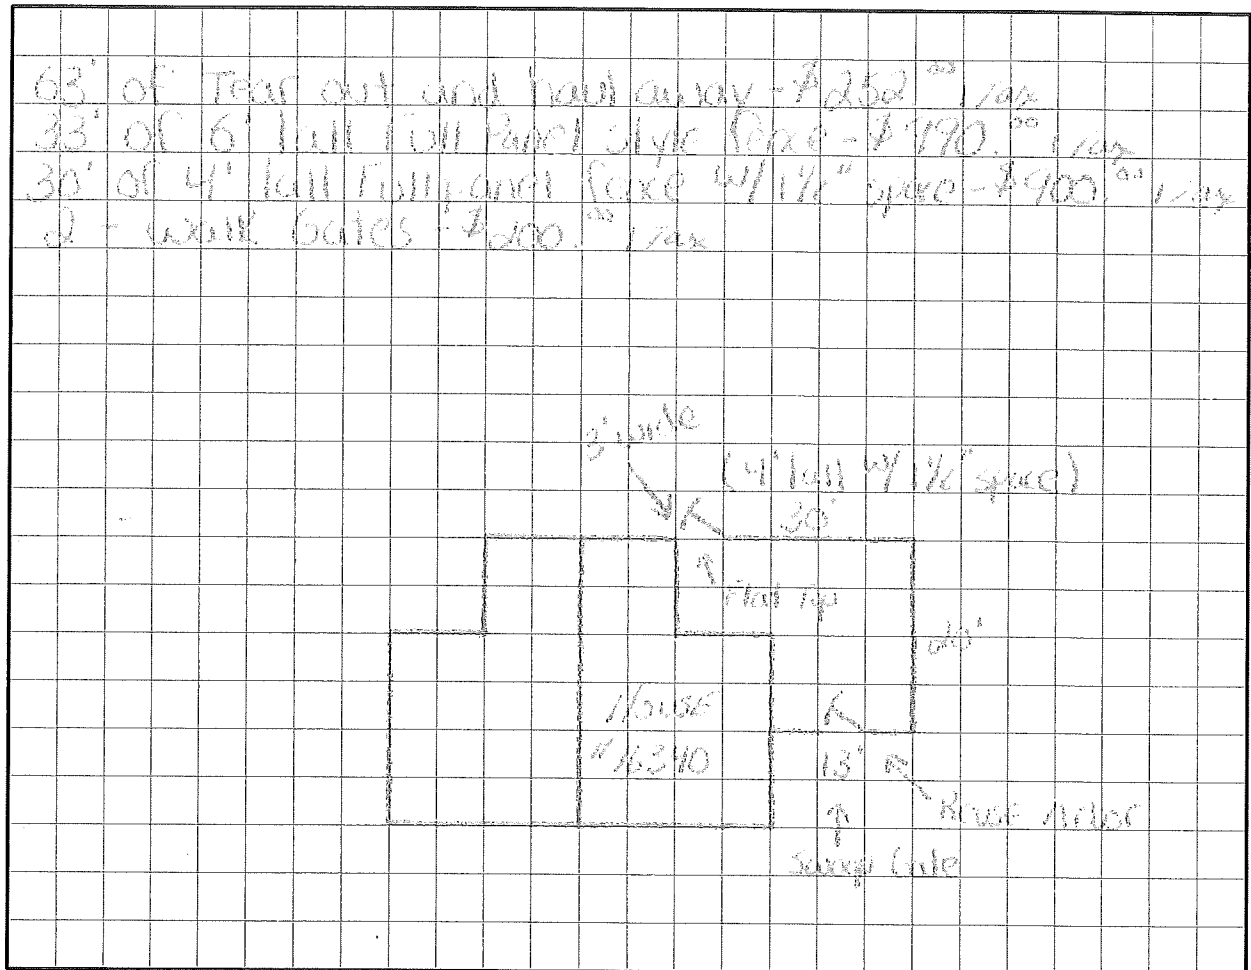 63' of Tear out and haul away - $252.00 + Tax
33' of 6' tall Full Panel Style fence - $790.00 + Tax
30' of 4' tall Full panel fence w/ 1½" space - $900.00 + Tax
2 - walk Gates - $200.00 + Tax
3' wide
(4' tall w/ 1½" space)
30'
Flat Top
20'
House
#16340
13'
Arbor
Swoop Gate